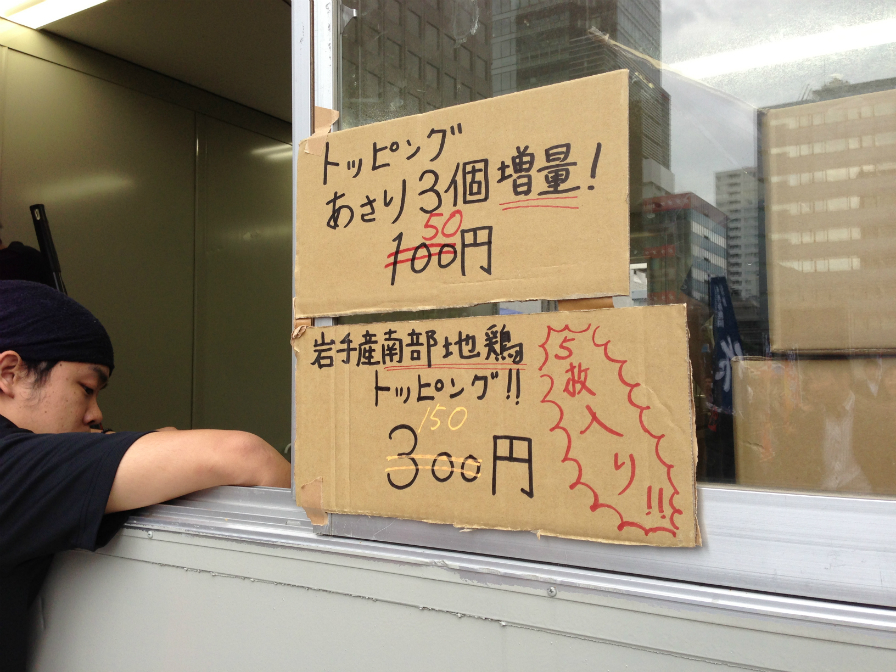 トッピング
あさり3個増量!
50
100円
岩手産南部地鶏
トッピング!!
150
300円
5枚入り!!